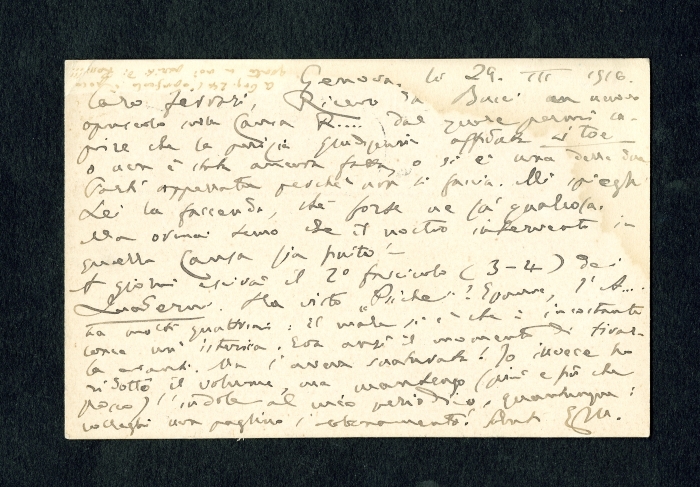 Genova, li 29. III 1916.
Caro Ferrari, Ricevo da Bucci un nuovo
opuscolo sulla Causa R.... dal quale parmi ca-
pire che la perizia giudiziaria affidata
o non è stata ancora fatta, o si è una delle due
Parti opposta perchè non si faccia. Mi spieghi
Lei la faccenda, che forse ne sa qualcosa.
Ma ormai temo che il nostro intervento in
questa Causa sia finito!
A giorni escirà il 2º fascicolo (3-4) dei
Quaderni. Ha visto "Psiche"? Eppure, l'A...
ha molti quattrini: il male si è che è incostante
come un' isterica. Era anzi il momento di tirar-
la avanti. Io invece ho
ridotto il volume, ma mantengo (più e più che
posso) l'indole al mio periodico, quantunque
non paghino l'abbonamento! Saluti E.M.